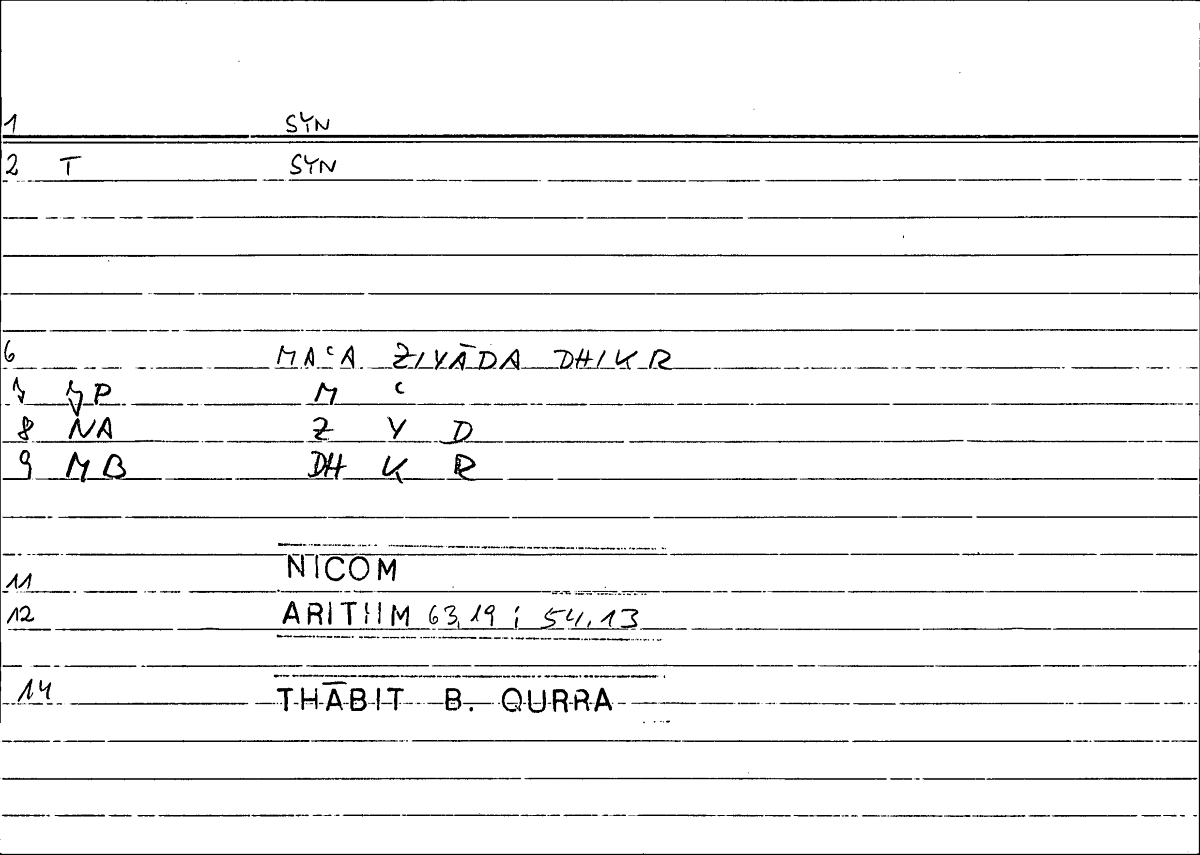 1 SYN
2 T SYN
6 MAʿA ZIYĀDA DHIKR
7 P M ʿ
8 NA Z Y D
9 MB DH K R
NICOM
11
12 ARITHM 63,19 ; 54,13
14 THĀBIT B. QURRA